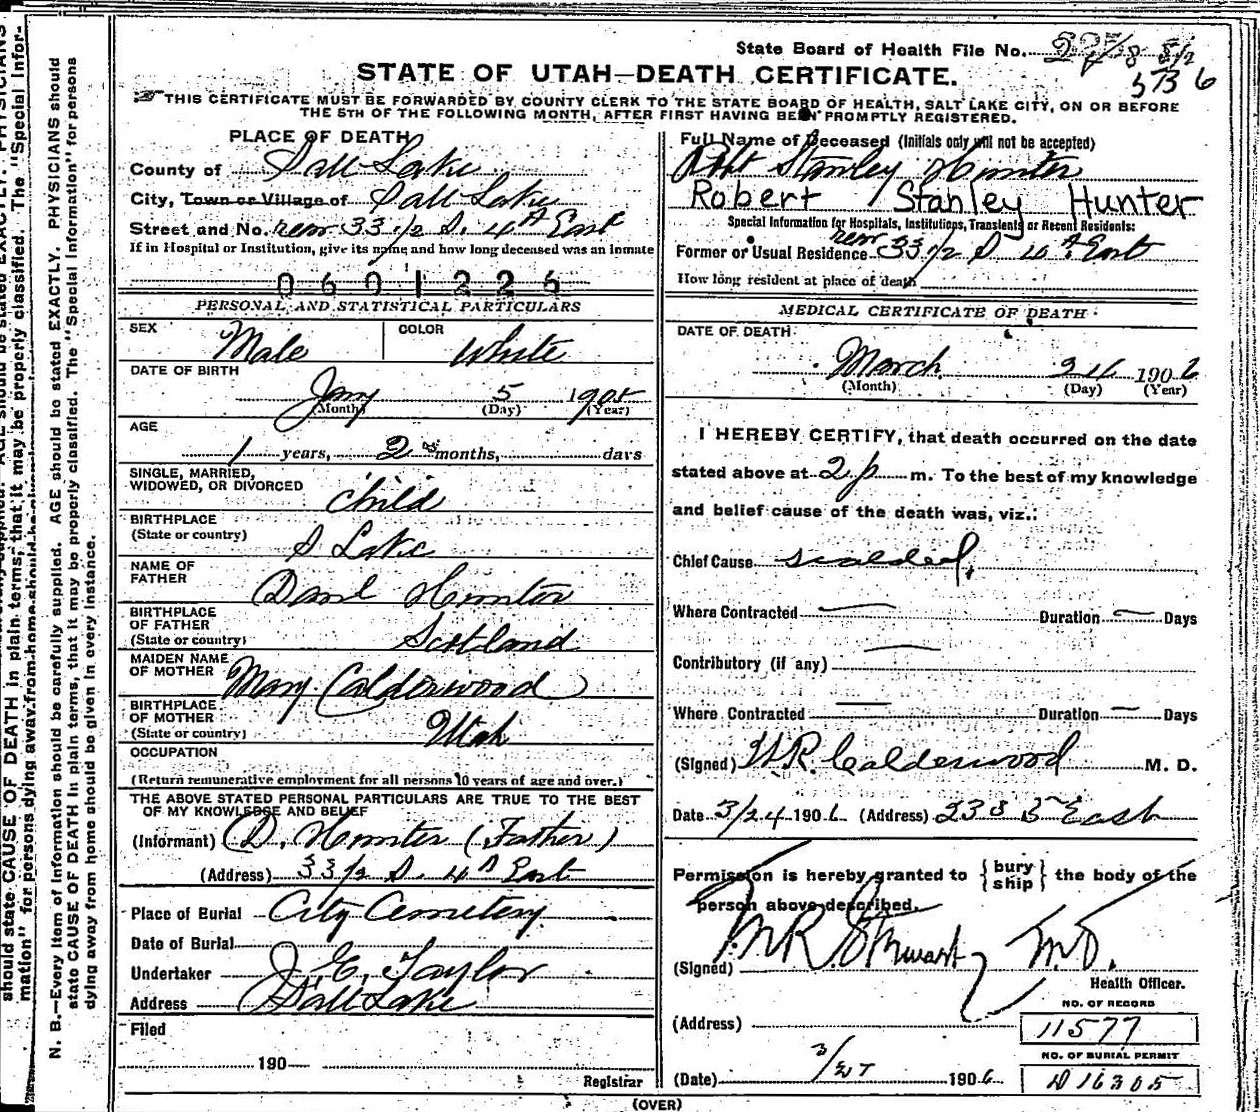 State Board of Health File No.
5736
STATE OF UTAH—DEATH CERTIFICATE.
THIS CERTIFICATE MUST BE FORWARDED BY COUNTY CLERK TO THE STATE BOARD OF HEALTH, SALT LAKE CITY, ON OR BEFORE
THE 5TH OF THE FOLLOWING MONTH, AFTER FIRST HAVING BEEN PROMPTLY REGISTERED.
PLACE OF DEATH
County of Salt Lake
City, Town or Village of Salt Lake
Street and No. rear 33 1/2 S. 4th East
If in Hospital or Institution, give its name and how long deceased was an inmate
0601226
PERSONAL AND STATISTICAL PARTICULARS
SEX Male COLOR White
DATE OF BIRTH
Jany 5 1905
(Month) (Day) (Year)
AGE
1 years, 2 months, days
SINGLE, MARRIED,
WIDOWED, OR DIVORCED child
BIRTHPLACE
(State or country) S Lake
NAME OF
FATHER David Hunter
BIRTHPLACE
OF FATHER
(State or country) Scotland
MAIDEN NAME
OF MOTHER Mary Calderwood
BIRTHPLACE
OF MOTHER
(State or country) Utah
OCCUPATION
(Return remunerative employment for all persons 10 years of age and over.)
THE ABOVE STATED PERSONAL PARTICULARS ARE TRUE TO THE BEST
OF MY KNOWLEDGE AND BELIEF
(Informant) D. Hunter (Father)
(Address) 33 1/2 S. 4th East
Place of Burial City Cemetery
Date of Burial
Undertaker J. E. Taylor
Address Salt Lake
Filed
190
Registrar
Full Name of Deceased (Initials only will not be accepted)
Robt Stanley Hunter
Robert Stanley Hunter
Special Information for Hospitals, Institutions, Transients or Recent Residents:
Former or Usual Residence rear 33 1/2 S 4th East
How long resident at place of death
MEDICAL CERTIFICATE OF DEATH
DATE OF DEATH
March 24 1906
(Month) (Day) (Year)
I HEREBY CERTIFY, that death occurred on the date
stated above at 2 p. m. To the best of my knowledge
and belief cause of the death was, viz.:
Chief Cause scalded.
Where Contracted — Duration — Days
Contributory (if any) —
Where Contracted — Duration — Days
(Signed) W. R. Calderwood M. D.
Date 3/24 1906 (Address) 238 5 East
Permission is hereby granted to {bury ship} the body of the
person above described.
(Signed) M R Stewart M.D.
Health Officer.
NO. OF RECORD
(Address) 11577
NO. OF BURIAL PERMIT
(Date) 1906 D 16305
(OVER)
N. B.—Every item of information should be carefully supplied. AGE should be stated EXACTLY. PHYSICIANS should
state CAUSE OF DEATH in plain terms, that it may be properly classified. The "Special Information" for persons
dying away from home should be given in every instance.
should state CAUSE OF DEATH in plain terms, that it may be properly classified. The "Special Infor-
mation" for persons dying away from home should be